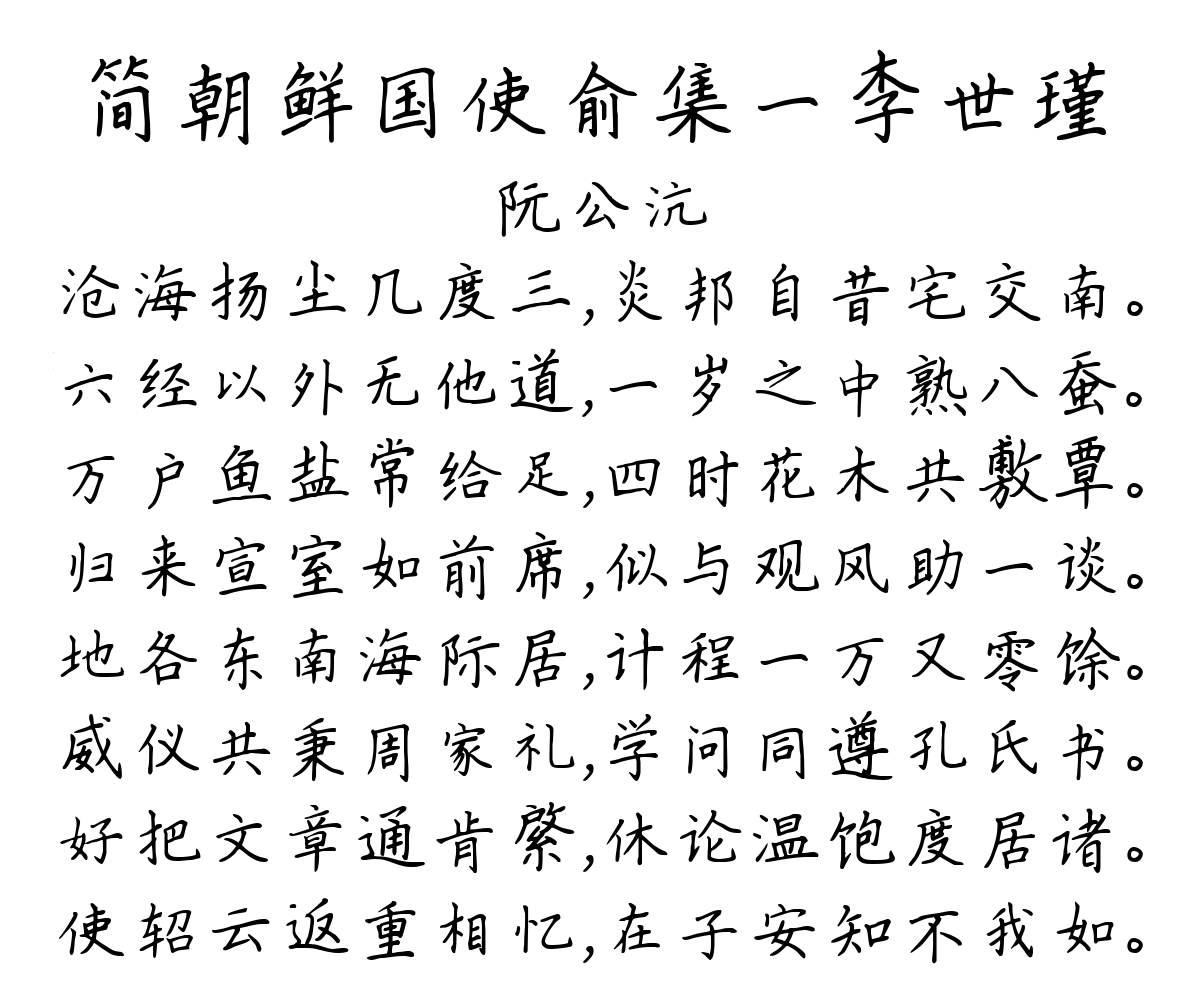 简朝鲜国使俞集一李世瑾
阮公沆
沧海扬尘几度三,炎邦自昔宅交南。
六经以外无他道,一岁之中熟八蚕。
万户鱼盐常给足,四时花木共敷覃。
归来宣室如前席,似与观风助一谈。
地各东南海际居,计程一万又零馀。
威仪共秉周家礼,学问同遵孔氏书。
好把文章通肯綮,休论温饱度居诸。
使轺云返重相忆,在子安知不我如。